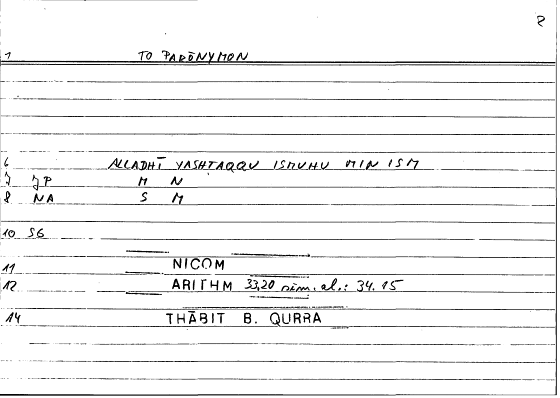 2
1 TO PARŌNYMON
6 ALLADHĪ YASHTAQQU ISMUHU MIN ISM
7 JP M N
8 NA S M
10 SG
11 NICOM
12 ARITHM 33,20 sim. al.: 34.15
14 THĀBIT B. QURRA